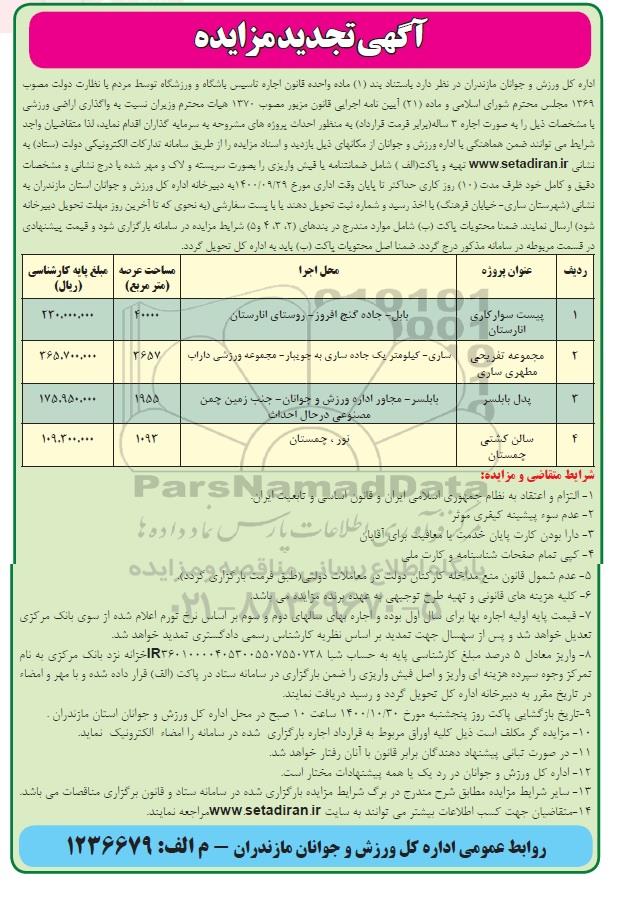 آگهی تجدید مزایده
اداره کل ورزش و جوانان مازندران در نظر دارد باستناد بند (۱) ماده واحده قانون اجاره تاسیس باشگاه و ورزشگاه توسط مردم با نظارت دولت مصوب
۱۳۶۹ مجلس محترم شورای اسلامی و ماده (۲۱) آیین نامه اجرایی قانون مزبور مصوب ۱۳۷۰ هیات محترم وزیران نسبت به واگذاری اراضی ورزشی
با مشخصات ذیل را به صورت اجاره ۳ ساله(برابر فرمت قرارداد) به منظور احداث پروژه های مشروحه به سرمایه گذاران اقدام نماید، لذا متقاضیان واجد
شرایط می توانند ضمن هماهنگی با اداره ورزش و جوانان از مکانهای ذیل بازدید و اسناد مزایده را از طریق سامانه تدارکات الکترونیکی دولت (ستاد) به
نشانی www.setadiran.ir تهیه و پاکت(الف) شامل ضمانتنامه یا فیش واریزی را بصورت سربسته و لاک و مهر شده با درج نشانی و مشخصات
دقیق و کامل خود ظرف مدت (۱۰) روز کاری حداکثر تا پایان وقت اداری مورخ ۱۴۰۰/۰۹/۲۹به دبیرخانه اداره کل ورزش و جوانان استان مازندران به
نشانی (شهرستان ساری- خیابان فرهنگ) با اخذ رسید و شماره ثبت تحویل دهند یا با پست سفارشی (به نحوی که تا آخرین روز مهلت تحویل دبیرخانه
شود) ارسال نمایند. ضمنا محتویات پاکت (ب) شامل موارد مندرج در بندهای (۲، ۳، ۴ و۵) شرایط مزایده در سامانه بارگزاری شود و قیمت پیشنهادی
در قسمت مربوطه در سامانه مذکور درج گردد. ضمنا اصل محتویات پاکت (ب) باید به اداره کل تحویل گردد.
ردیف عنوان پروژه محل اجرا مساحت عرصه (متر مربع) مبلغ پایه کارشناسی (ریال)
۱ پیست سوارکاری انارستان بابل- جاده گنج افروز- روستای انارستان ۴۰۰۰۰ ۲۳۰.۰۰۰.۰۰۰
۲ مجموعه تفریحی مطهری ساری ساری- کیلومتر یک جاده ساری به جویبار- مجموعه ورزشی داراب ۳۶۵۷ ۳۶۵.۷۰۰.۰۰۰
۳ پدل بابلسر بابلسر- مجاور اداره ورزش و جوانان- جنب زمین چمن مصنوعی درحال احداث ۱۹۵۵ ۱۷۵.۹۵۰.۰۰۰
۴ سالن کشتی چمستان نور ، چمستان ۱۰۹۳ ۱۰۹.۳۰۰.۰۰۰
شرایط متقاضی و مزایده:
۱- التزام و اعتقاد به نظام جمهوری اسلامی ایران و قانون اساسی و تابعیت ایران.
۲- عدم سوء پیشینه کیفری موثر
۳- دارا بودن کارت پایان خدمت یا معافیت برای آقایان
۴- کپی تمام صفحات شناسنامه و کارت ملی
۵- عدم شمول قانون منع مداخله کارکنان دولت در معاملات دولتی(طبق فرمت بارگزاری گردد).
۶- کلیه هزینه های قانونی و تهیه طرح توجیهی به عهده برنده مزایده می باشد.
۷- قیمت پایه اولیه اجاره بها برای سال اول بوده و اجاره بهای سالهای دوم و سوم بر اساس نرخ تورم اعلام شده از سوی بانک مرکزی
تعدیل خواهد شد و پس از سهسال جهت تمدید بر اساس نظریه کارشناس رسمی دادگستری تمدید خواهد شد.
۸- واریز معادل ۵ درصد مبلغ کارشناسی پایه به حساب شبا IR۳۶۰۱۰۰۰۰۴۰۵۳۰۰۵۵۰۷۵۵۰۷۲۸خزانه نزد بانک مرکزی به نام
تمرکز وجوه سپرده هزینه ای واریز و اصل فیش واریزی را ضمن بارگزاری در سامانه ستاد در پاکت (الف) قرار داده شده و با مهر و امضاء
در تاریخ مقرر به دبیرخانه اداره کل تحویل گردد و رسید دریافت نمایند.
۹-تاریخ بازگشایی پاکت روز پنجشنبه مورخ ۱۴۰۰/۱۰/۳۰ ساعت ۱۰ صبح در محل اداره کل ورزش و جوانان استان مازندران .
۱۰- مزایده گر مکلف است ذیل کلیه اوراق مربوط به قرارداد اجاره بارگزاری شده در سامانه را امضاء الکترونیک نماید.
۱۱- در صورت تبانی پیشنهاد دهندگان برابر قانون با آنان رفتار خواهد شد.
۱۲- اداره کل ورزش و جوانان در رد یک یا همه پیشنهادات مختار است.
۱۳- سایر شرایط مزایده مطابق شرح مندرج در برگ شرایط مزایده بارگزاری شده در سامانه ستاد و قانون برگزاری مناقصات می باشد.
۱۴-متقاضیان جهت کسب اطلاعات بیشتر می توانند به سایت www.setadiran.irمراجعه نمایند.
روابط عمومی اداره کل ورزش و جوانان مازندران – م الف: ۱۲۳۶۶۷۹
ParsNamadData
پایگاه اطلاع رسانی مناقصه و مزایده
۰۲۱-۸۸۳۴۹۶۷۰-۵